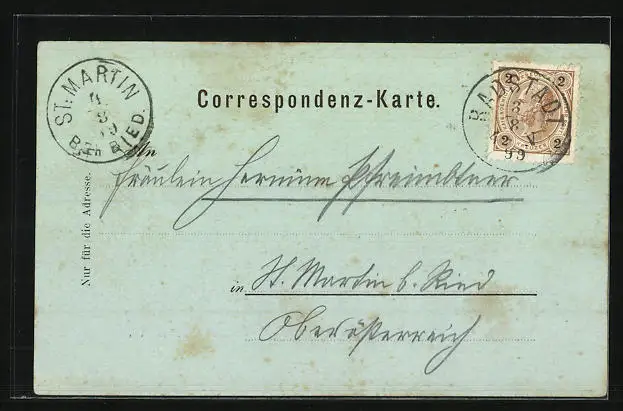 ST. MARTIN
4
8
99
B. RIED.
Correspondenz-Karte.
2 2
RADSTADT
3
8
99
2 2
An
Fräulein Hermine
in St. Martin b. Ried
Oberösterreich
Nur für die Adresse.